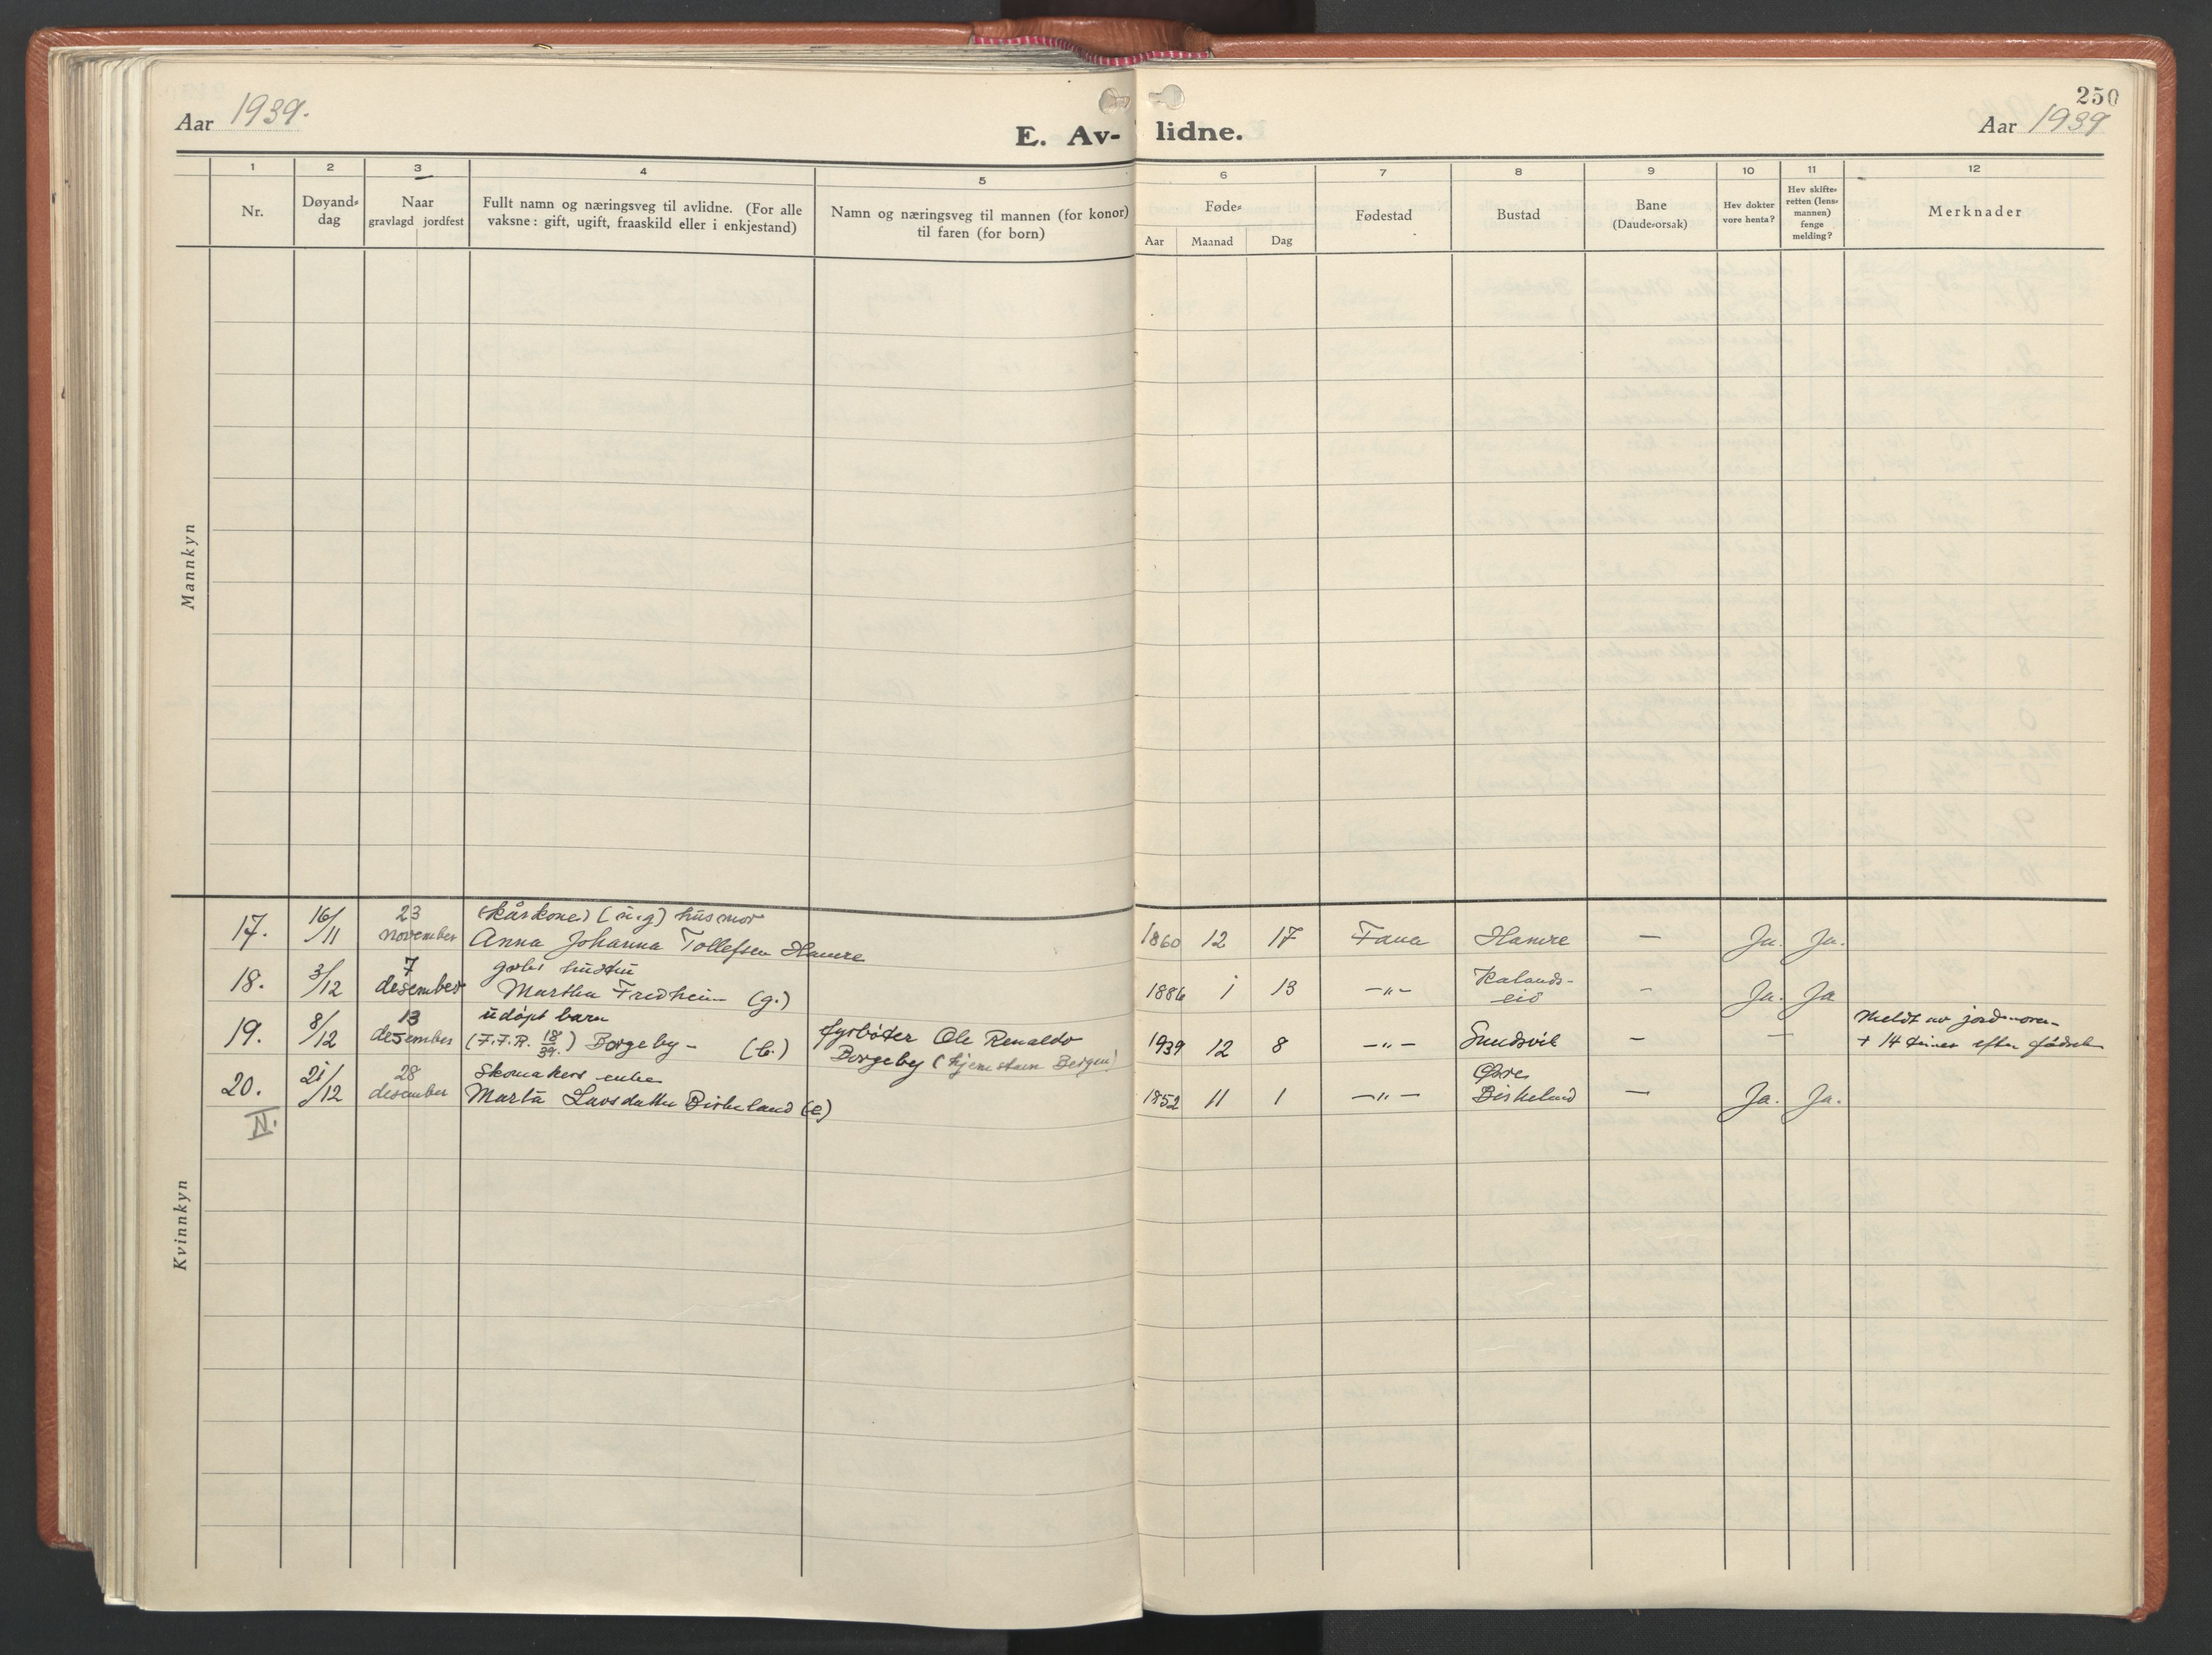 250
Aar 1939.
E. Av- lidne.
Aar 1939
1 2 3 4 5 6 7 8 9 10 11 12
Nr.
Døyand-
dag
Naar
gravlagd jordfest
Fullt namn og næringsveg til avlidne. (For alle
vaksne: gift, ugift, fraaskild eller i enkjestand)
Namn og næringsveg til mannen (for konor)
til faren (for born)
Føde-
Aar Maanad Dag
Fødestad
Bustad
Bane
(Daude-orsak)
Hev dokter
vore henta?
Hev skifte-
retten (lens-
mannen)
fenge
melding?
Merknader
Mannkyn
17. 16/11 23 november (kårkone) (u.g) husmor
Anna Johanna Tollefsen Hamre 1860 12 17 Fana Hamre — Ja. Ja.
18. 3/12 7 desember hustru
Martha Fredheim (g.) 1886 1 13 -"- Kalands-
eid - Ja. Ja
19. 8/12 13 desember udøpt barn
(F.F.R. 18/39.) Borgeby - (b.) fyrbøter Ole Renaldo
Borgeby (hjemstavn Bergen) 1939 12 8 -"- Smudsvik — — Meldt av jordmoren-
+ 14 timer efter fødselen
20. 21/12 28 desember Skomakers enke
Marta Larsdatter Birkeland (e) 1852 11 1 -"- Øvre
Birkeland — Ja. Ja.
N.
Kvinnkyn